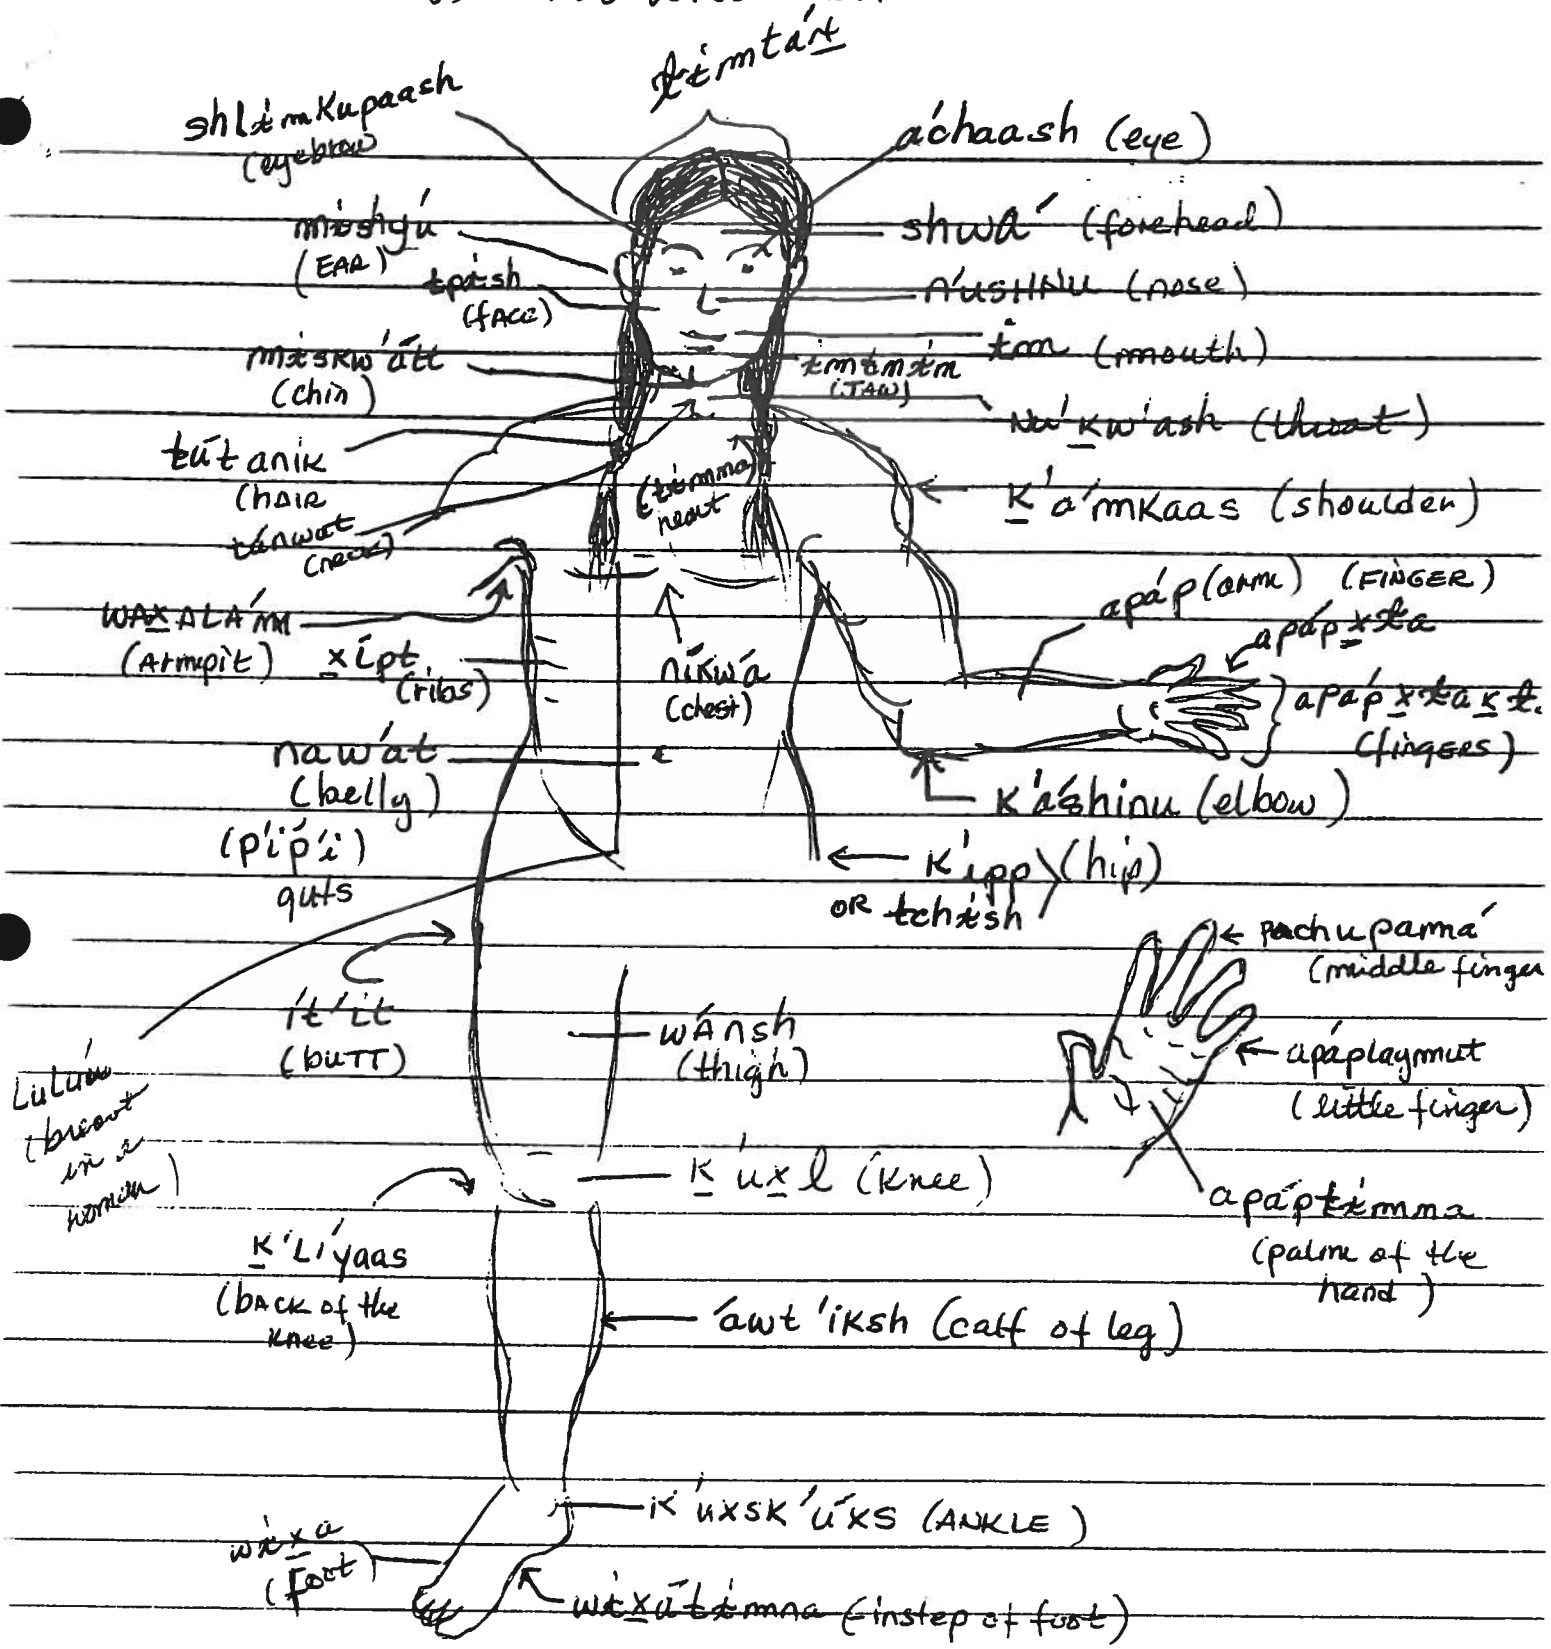 shlɨmkupaash
(eyebrow
áchaash (eye)
mɨshyú
(EAR)
shwá (forehead)
tpɨsh
(fACE)
núSHNU (nose)
ɨm (mouth)
ɨmɨmɨm
(JAW)
(chin)
Nú'k̲w'ash (throat)
tútanik
(hAIR
(tɨmna)
heart
k̲'á'mkaas (shoulder)
tánwat
(neck)
apáp (arm) (FINGER)
WAX̲ALÁ'm
(Armpit)
x̲ípt
(ribs)
níkwá
(chest)
(fingers)
naw'át
(belly)
k'á'shinu (elbow)
(p'íp'i)
guts
k'ipp (hip)
OR tchɨsh
pachupamá
(middle finger
ít'it
(buTT)
wÁnsh
(thigh)
apáplaymut
(little finger)
(breast
in a
woman)
k̲'úx̲l (knee)
apáptɨmna
(palm of the
hand)
k̲'Lí'yaas
(bACK of the
knee)
áwt'iksh (calf of leg)
k'úxsk'úxs (ANKLE)
wɨx̲a
(foot)
wɨx̲átɨmna (instep of foot)